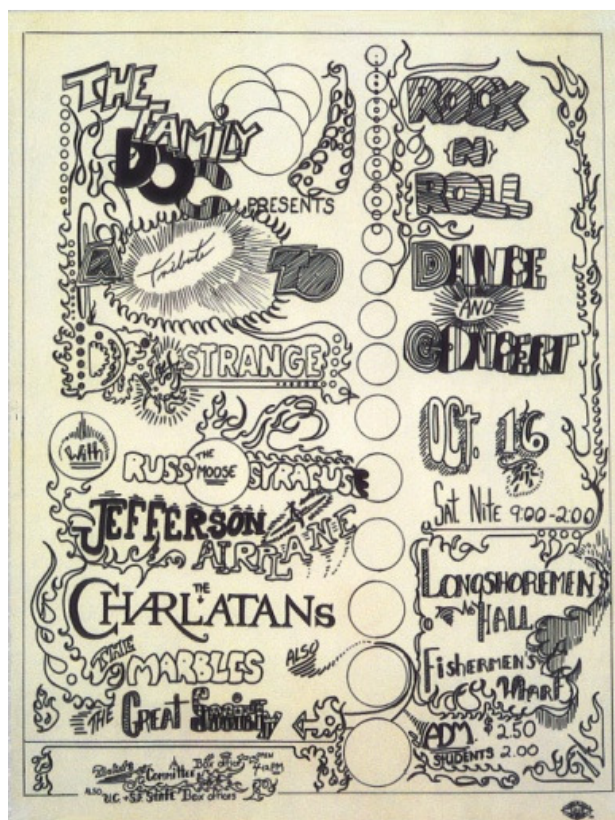 THE
FAMILY
DOG
PRESENTS
A tribute TO
Dr. STRANGE
With
RUSS THE MOOSE SYRACUSE
JEFFERSON
AIRPLANE
THE
CHARLATANS
THE MARBLES
ALSO
THE GREAT Society
Box office OPEN
Committee
ALSO U.C. + S.F. STATE Box offices
ROCK
N
ROLL
DANCE
AND
CONCERT
OCT. 16
AT
SAT. NITE 9:00-2:00
LONGSHOREMEN
HALL
FISHERMEN'S
WHARF
ADM. $2.50
STUDENTS 2.00